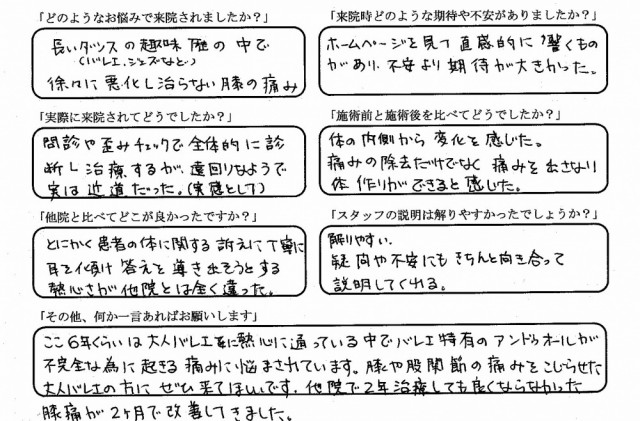 「どのようなお悩みで来院されましたか？」
長いダンスの趣味歴の中で
（バレエ、ジャズなど）
徐々に悪化し治らない膝の痛み
「来院時どのような期待や不安がありましたか？」
ホームページを見て直感的に響くもの
があり、不安より期待が大きかった。
「実際に来院されてどうでしたか？」
問診や歪みチェックで全体的に診
断し治療するが、遠回りなようで
実は近道だった。（実感として）
「施術前と施術後を比べてどうでしたか？」
体の内側から変化を感じた。
痛みの除去だけでなく痛みを出さない
体作りができると感じた。
「他院と比べてどこが良かったですか？」
とにかく患者の体に関する訴えに丁寧に
耳を傾け答えを導き出そうとする
熱心さが他院とは全く違った。
「スタッフの説明は解りやすかったでしょうか？」
解りやすい、
疑問や不安にもきちんと向き合って
説明してくれる。
「その他、何か一言あればお願いします」
ここ6年くらいは大人バレエを熱心に通っている中でバレエ特有のアンドゥオールが
不完全な為に起きる痛みに悩まされています。膝や股関節の痛みをこじらせた
大人バレエの方にぜひ来てほしいです。他院で2年治療しても良くならなかった
膝痛が2ヶ月で改善してきました。